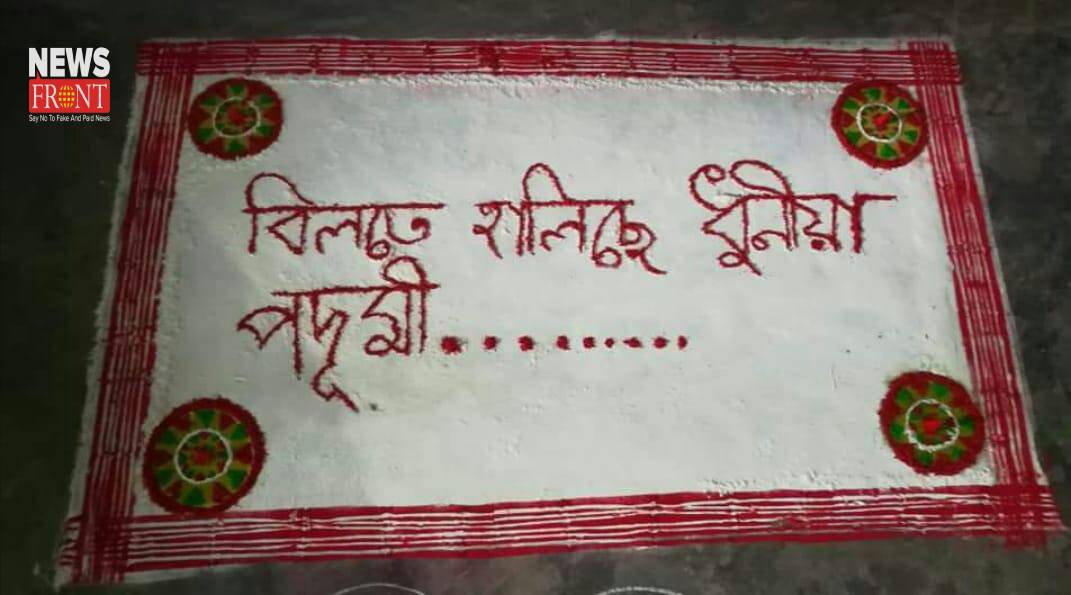 NEWS
FRONT
Say No To Fake And Paid News
বিলতে হালিছে ধুনীয়া
পদূমী..........